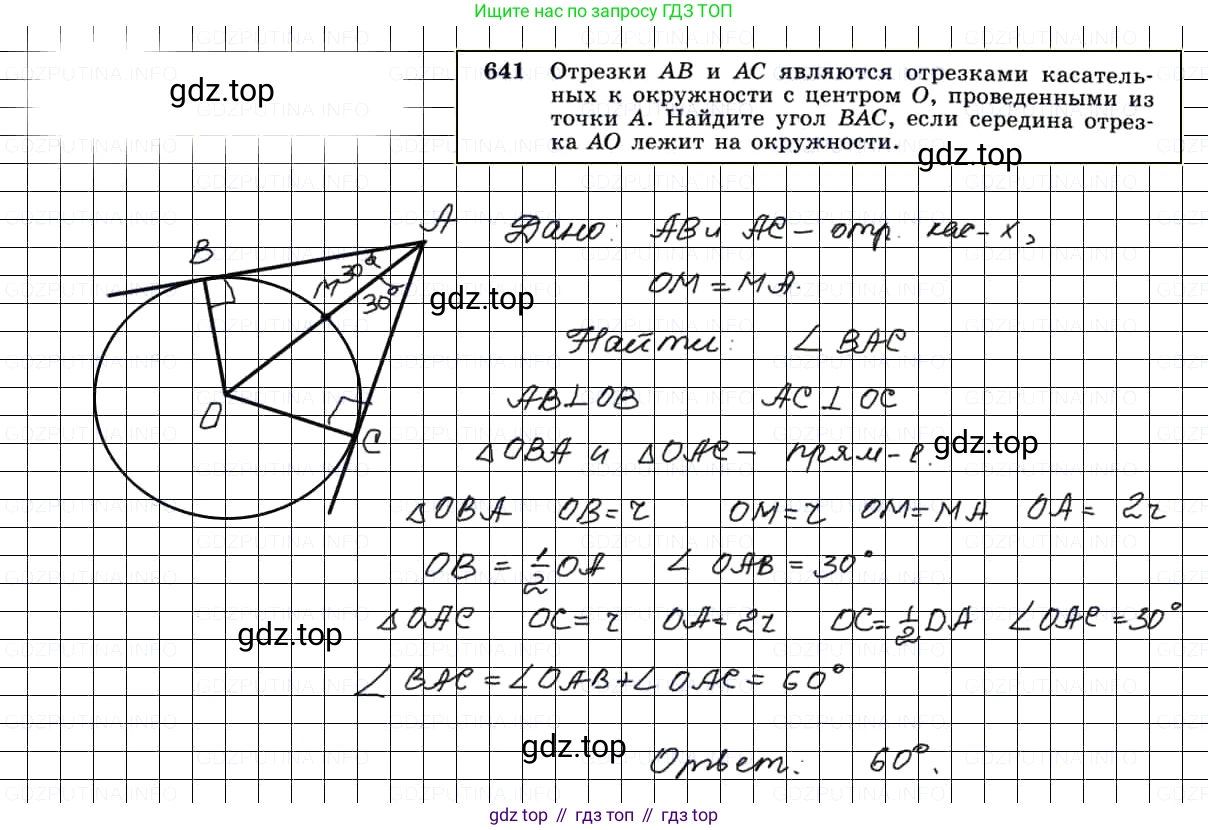 Ищите нас по запросу ГДЗ ТОП
gdz.top
641 Отрезки AB и AC являются отрезками касатель-
ных к окружности с центром O, проведенными из
точки A. Найдите угол BAC, если середина отрез-
ка AO лежит на окружности.
gdz.top
Дано: AB и AC – отр. кас-х,
OM = MA.
gdz.top
Найти: ∠ BAC
AB⊥OB AC ⊥ OC
gdz.top
△OBA и △OAC – прям-е.
△OBA OB = r OM = r OM = MA OA = 2r
OB = 1/2 OA ∠ OAB = 30°
△OAC OC = r OA = 2r OC = 1/2 OA ∠OAC = 30°
gdz.top
∠ BAC = ∠OAB + ∠OAC = 60°
gdz.top
Ответ: 60°.
A
B
M
30°
30°
O
C
gdz top // гдз топ // гдз top
GDZPUTINA.INFO